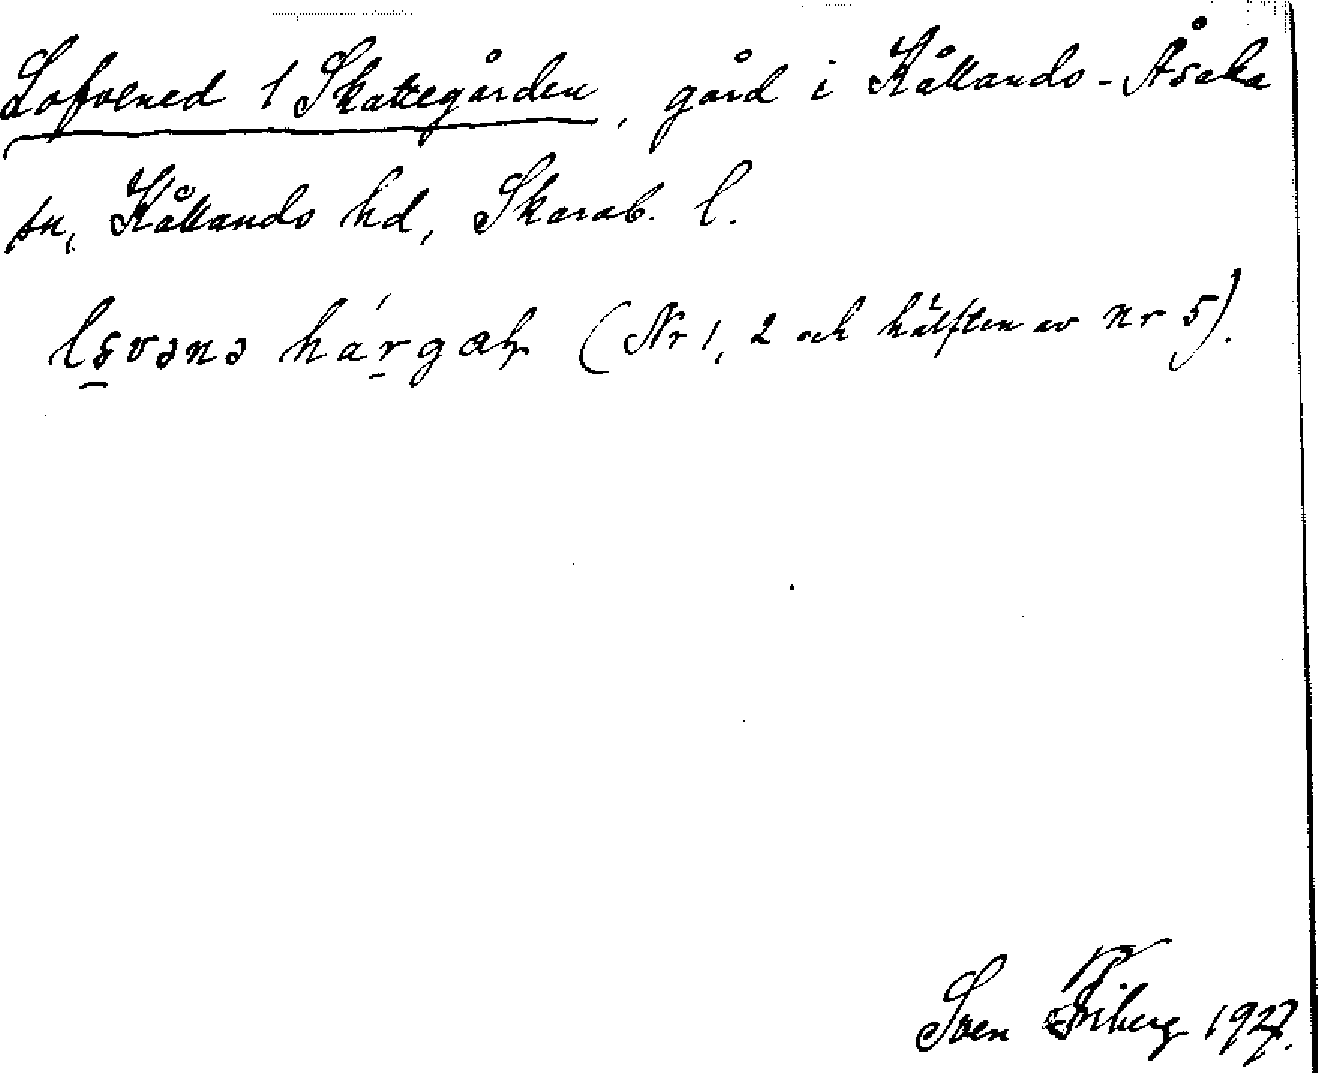 Lofvened 1 Skattegården, gård i Kållands-Åsaka
sn, Kållands hd, Skarab. l.
(Nr 1, 2 och hälften av nr 5).
Sven Friberg 1927.